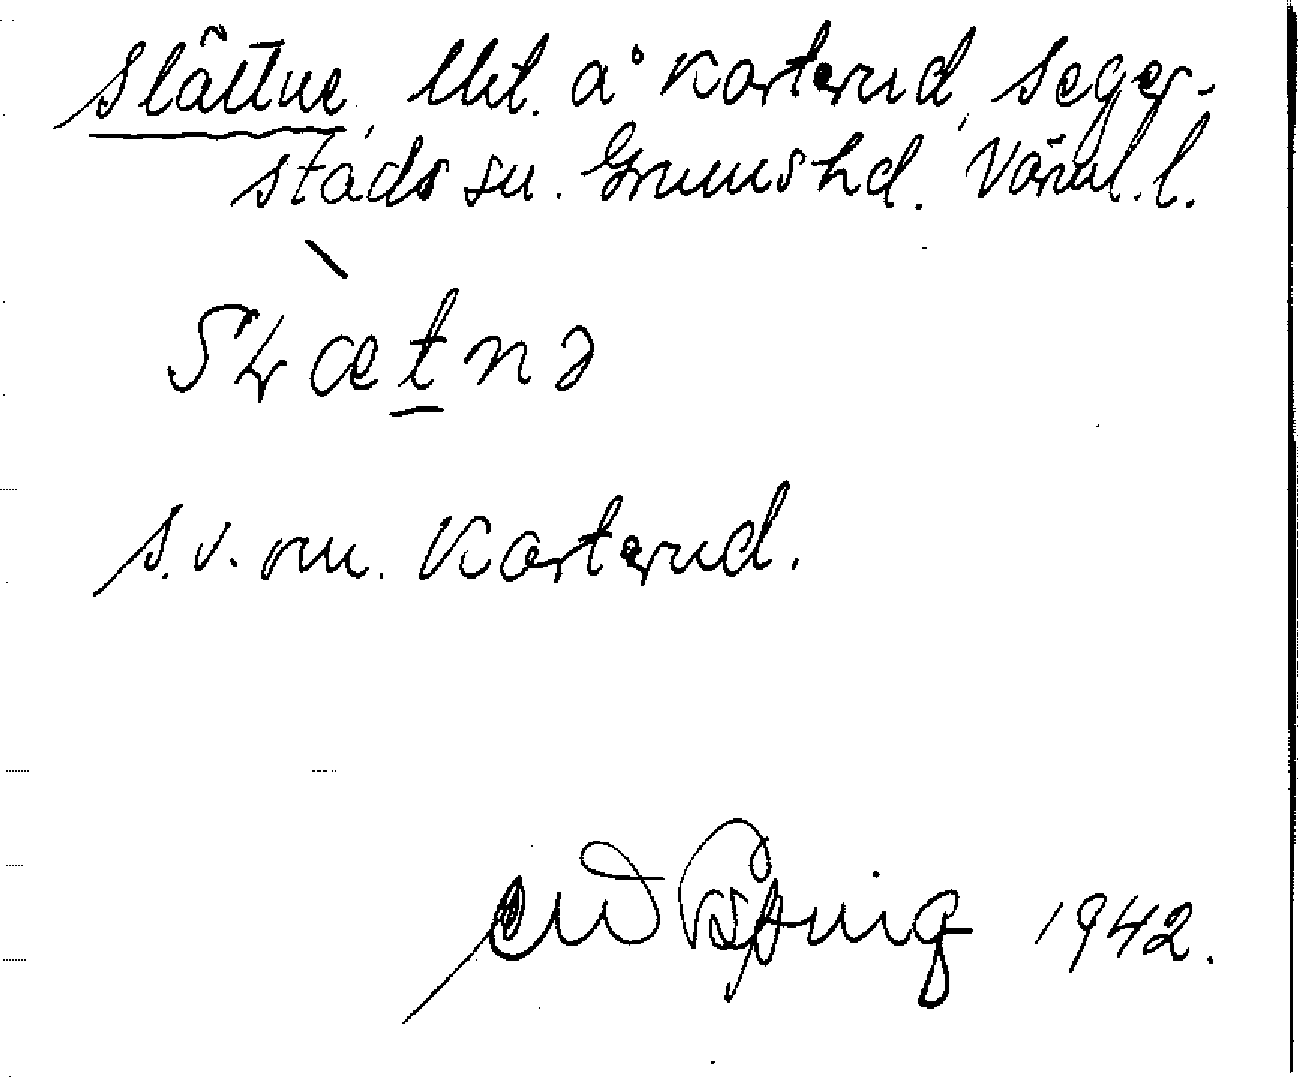 Slättne, Ukt. å Korterud, Seger-
stads sn. Grums hd. Värml. l.
Slætnə
s.v. om Korterud.
1942.